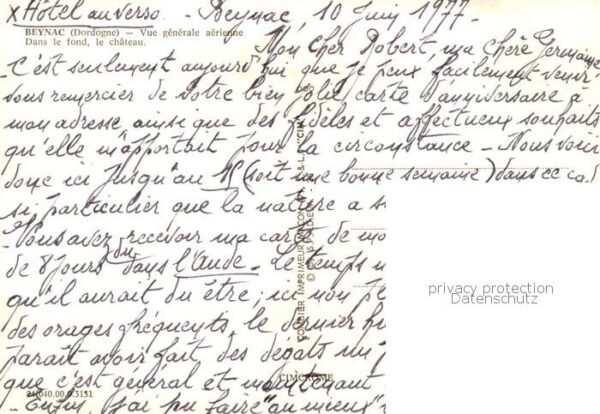 x Hôtel au verso. - Beynac, 10 Juin 1977 -
BEYNAC (Dordogne) — Vue générale aérienne
Dans le fond, le château.
Mon cher Robert, ma chère Germaine
- C'est seulement aujourd'hui que je peux facilement venir
vous remercier de votre bien jolie carte d'anniversaire à
mon adresse ainsi que des fidèles et affectueux souhaits
qu'elle m'apportait pour la circonstance - Nous voici
donc ici jusqu'au 15 (soit une bonne semaine) dans ce ca
si particulier que la nature a s
- Vous avez dû recevoir ma carte de mo
de 8 jours dans l'Aude - Le temps n
qu'il aurait du être; ici non pl
des orages fréquents, le dernier
paraît avoir fait des dégâts
que c'est général et maintenant
- Enfin, j'ai pu faire "au mieux"
CIMCROME
24.040.00.0.3151
privacy protection
Datenschutz